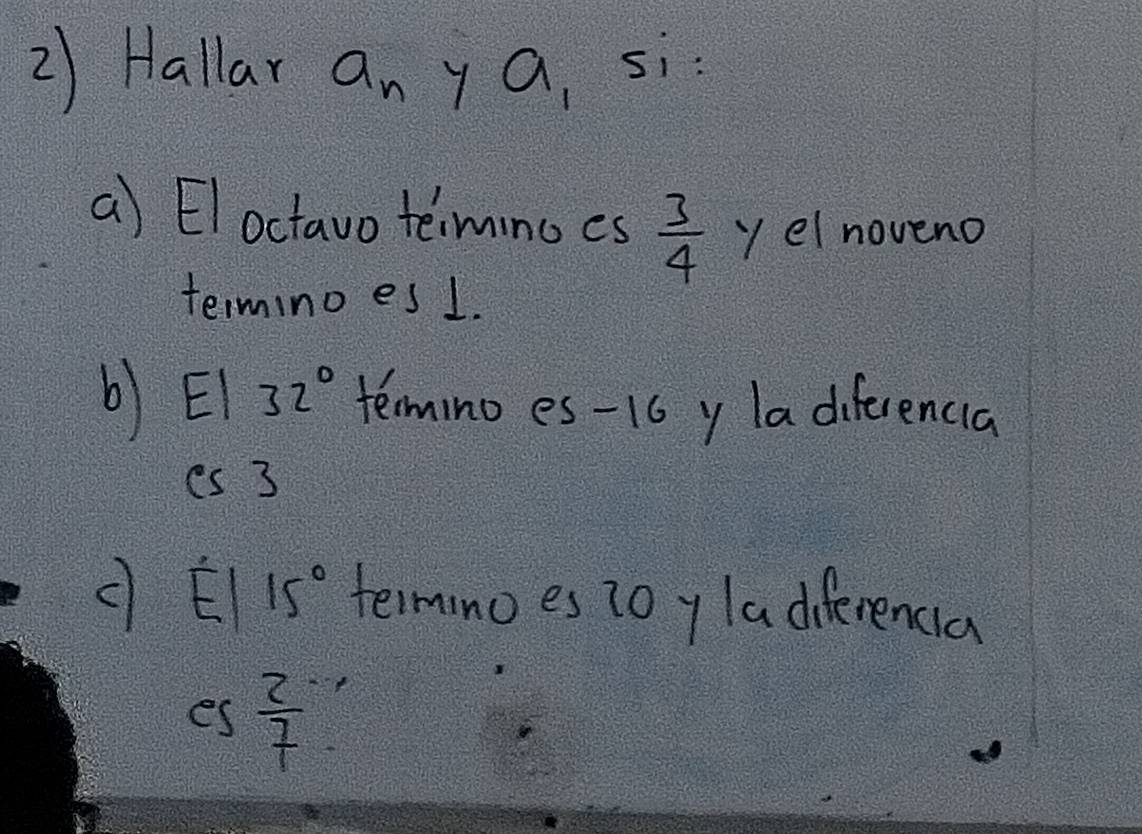 2) Hallar aₙ y a₁ si:
a) El octavo término es 3/4 y el noveno
termino es 1.
b) El 32° término es -16 y la diferencia
es 3
c) Él 15° termino es 20 y la diferencia
es 2/7